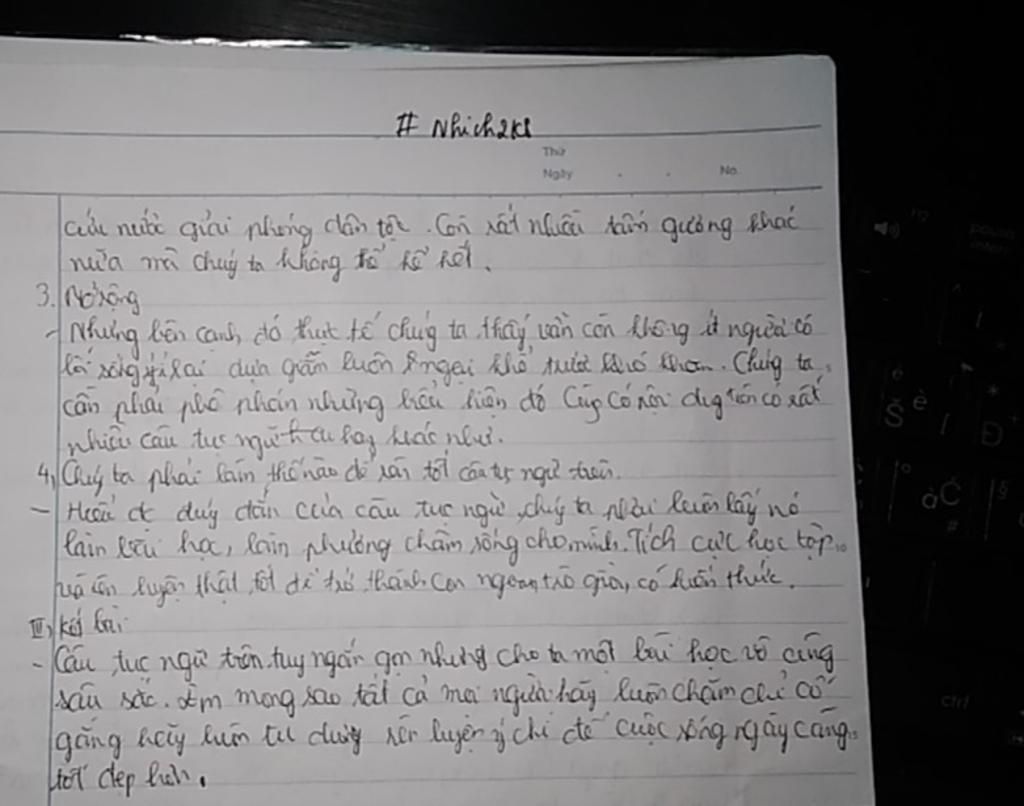 # Nhich2k8
Thứ
Ngày . . No.
cứu nước giải phóng dân tộc. Còn rất nhiều tấm gương khác
nữa mà chúg ta không thể kể hết.
3. Mở rộng
- Nhưng bên cạnh đó thực tế chúg ta thấy vẫn còn không ít người có
lối sống ỷ lại dựa giẫm luôn ngại khổ trước khó khăn. Chúg ta
cần phải phê phán những biểu hiện đó Cũg có nội dug trên có rất
nhiều câu tục ngữ hay khác như.
4, Chúg ta phải làm thế nào để tốt câu tục ngữ trên.
- Hiểu đc đúg đắn của câu tục ngữ, chúg ta phải luôn lấy nó
làm bài học, làm phương châm sống cho mình. Tích cực học tập
và rèn luyện thật tốt để trở thành con ngoan, trò giỏi, có kiến thức.
III, Kết bài
- Câu tục ngữ trên tuy ngắn gọn nhưg cho ta một bài học vô cùng
sâu sắc. Em mong sao tất cả mọi người hãy luôn chăm chỉ cố
gắng hãy luôn tư duy rèn luyện ý chí để cuộc sống ngày càng
tốt đẹp hơn.
pause
inter
Š
è
Đ
à
Č
#
§
ctrl